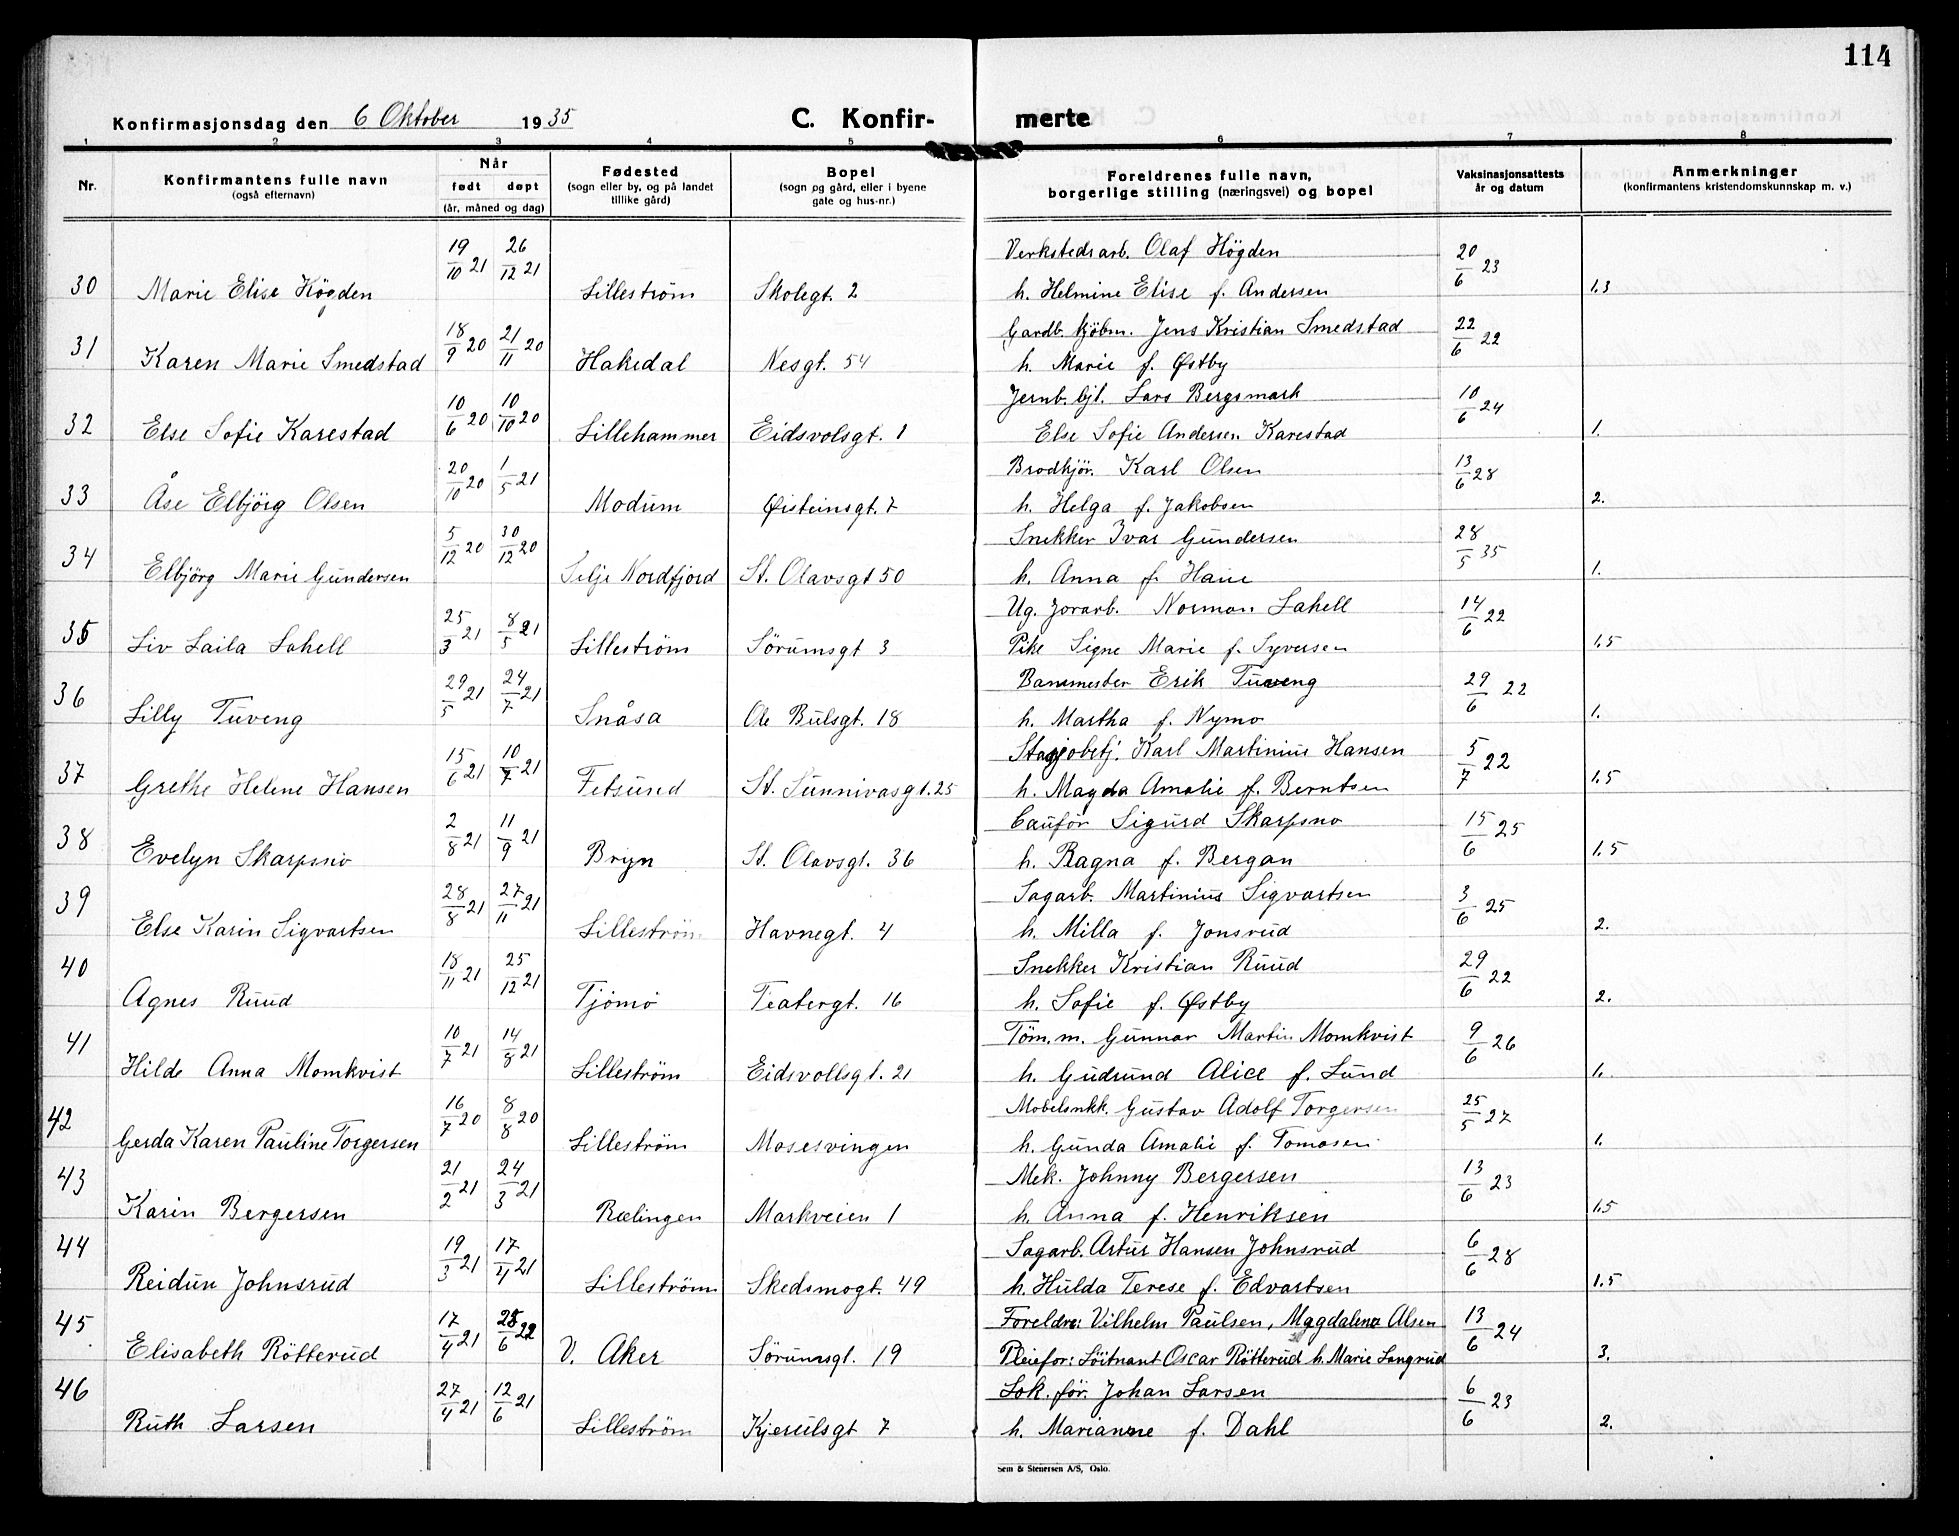 114
Konfirmasjonsdag den 6 Oktober 1935 C. Konfir- merte
1 2 3 4 5 6 7 8
Nr. Konfirmantens fulle navn (også efternavn) Når født døpt (år, måned og dag) Fødested (sogn eller by, og på landet tillike gård) Bopel (sogn og gård, eller i byene gate og hus-nr.) Foreldrenes fulle navn, borgerlige stilling (næringsvei) og bopel Vaksinasjonsattests år og datum Anmerkninger (konfirmantens kristendomskunnskap m. v.)
19/10 21 26/12 21 Verkstedsarb. Olaf Högden 20/6 23
30 Marie Elise Högden Lilleström Skolegt. 2 h. Helmine Elise f. Andersen 1.3
31 18/9 20 21/11 20 Gardb. kjöbm. Jens Kristian Smedstad 22/6 22
Karen Marie Smedstad Hakedal Nesgt. 54 h. Marie f. Østby
10/6 20 10/10 20 Jernb. bjt. Lars Bergsmark 10/6 24
32 Else Sofie Karestad Lillehammer Eidsvolsgt. 1 Else Sofie Andersen Karestad 1.
20/10 20 1/5 21 Brodkjör. Karl Olsen 13/6 28
33 Åse Elbjörg Olsen Modum Øisteinsgt. 7 h. Helga f. Jakobsen 2.
5/12 20 30/12 20 Snekker Ivar Gundersen 28/5 35
34 Elbjörg Marie Gundersen Selje Nordfjord St. Olavsgt 50 h. Anna f. 1.
25/3 21 8/5 21 Ug. Jorarb. Norman Lahell 14/6 22
35 Liv Laila Lahell Lilleström Sörumsgt 3 Pike Signe Marie f. Syversen 1.5
29/5 21 24/7 21 Banemester Erik Tuveng 29/6 22
36 Lilly Tuveng Snåsa Ole Bulsgt. 18 h. Martha f. Nymo 1.
15/6 21 10/7 21 Karl Martinius Hansen 5/7 22
37 Grethe Helene Hansen Fetsund St. Sunnivasgt. 25 h. Magda Amalie f. Berntsen 1.5
2/8 21 11/9 21 Sigurd Skarpsno 15/6 25
38 Evelyn Skarpsno Bryn St. Olavsgt. 36 h. Ragna f. Bergan 1.5
28/8 21 27/11 21 Sagarb. Martinius Sigvartsen 3/6 25
39 Else Karin Sigvartsen Lilleström Havnegt. 4 h. Milla f. Jonsrud 2.
18/11 21 25/12 21 Snekker Kristian Ruud 29/6 22
40 Agnes Ruud Tjömö Teatergt. 16 h. Sofie f. Østby 2.
10/7 21 14/8 21 Töm. m. Gunnar Martin Momkvist 9/6 26
41 Hilde Anna Momkvist Lilleström Eidsvollsgt. 21 h. Gudrund Alice f. Lund 1.
16/7 20 8/8 20 Mobelsnkk. Gustav Adolf Torgersen 25/5 27
42 Gerda Karen Pauline Torgersen Lilleström Mosesvingen h. Gunda Amalie f. Tomasen 1.
21/2 21 24/3 21 Mek. Johnny Bergersen 13/6 23
43 Karin Bergersen Rælingen Markveien 1 h. Anna f. Henriksen 1.5
19/3 21 17/4 21 Sagarb. Artur Hansen Johnsrud 6/6 28
44 Reidun Johnsrud Lilleström Skedsmogt. 49 h. Hulda Terese f. Edvartsen 1.5
17/4 21 25/6 22 Foreldre: Vilhelm Paulsen, Magdalena Alsen 13/6 24
45 Elisabeth Rötterud V. Aker Sörumsgt. 19 Pleiefor: Löitnant Oscar Rötterud h. Marie Langrud 3.
27/4 21 12/6 21 Lok. för. Johan Larsen 6/6 23
46 Ruth Larsen Lilleström Kjerulsgt 7 h. Marianne f. Dahl 2.
Sem & Stenersen A/S, Oslo.